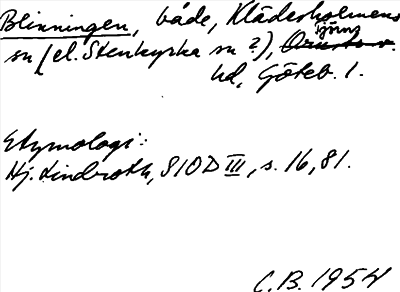 Blinningen, både, Klädesholmens
sn (el. Stenkyrka sn?), Orusts v. Tjörns
hd, Göteb. l.
Etymologi:
Hj. Lindroth, SIOD III, s. 16, 81.
C.B. 1954